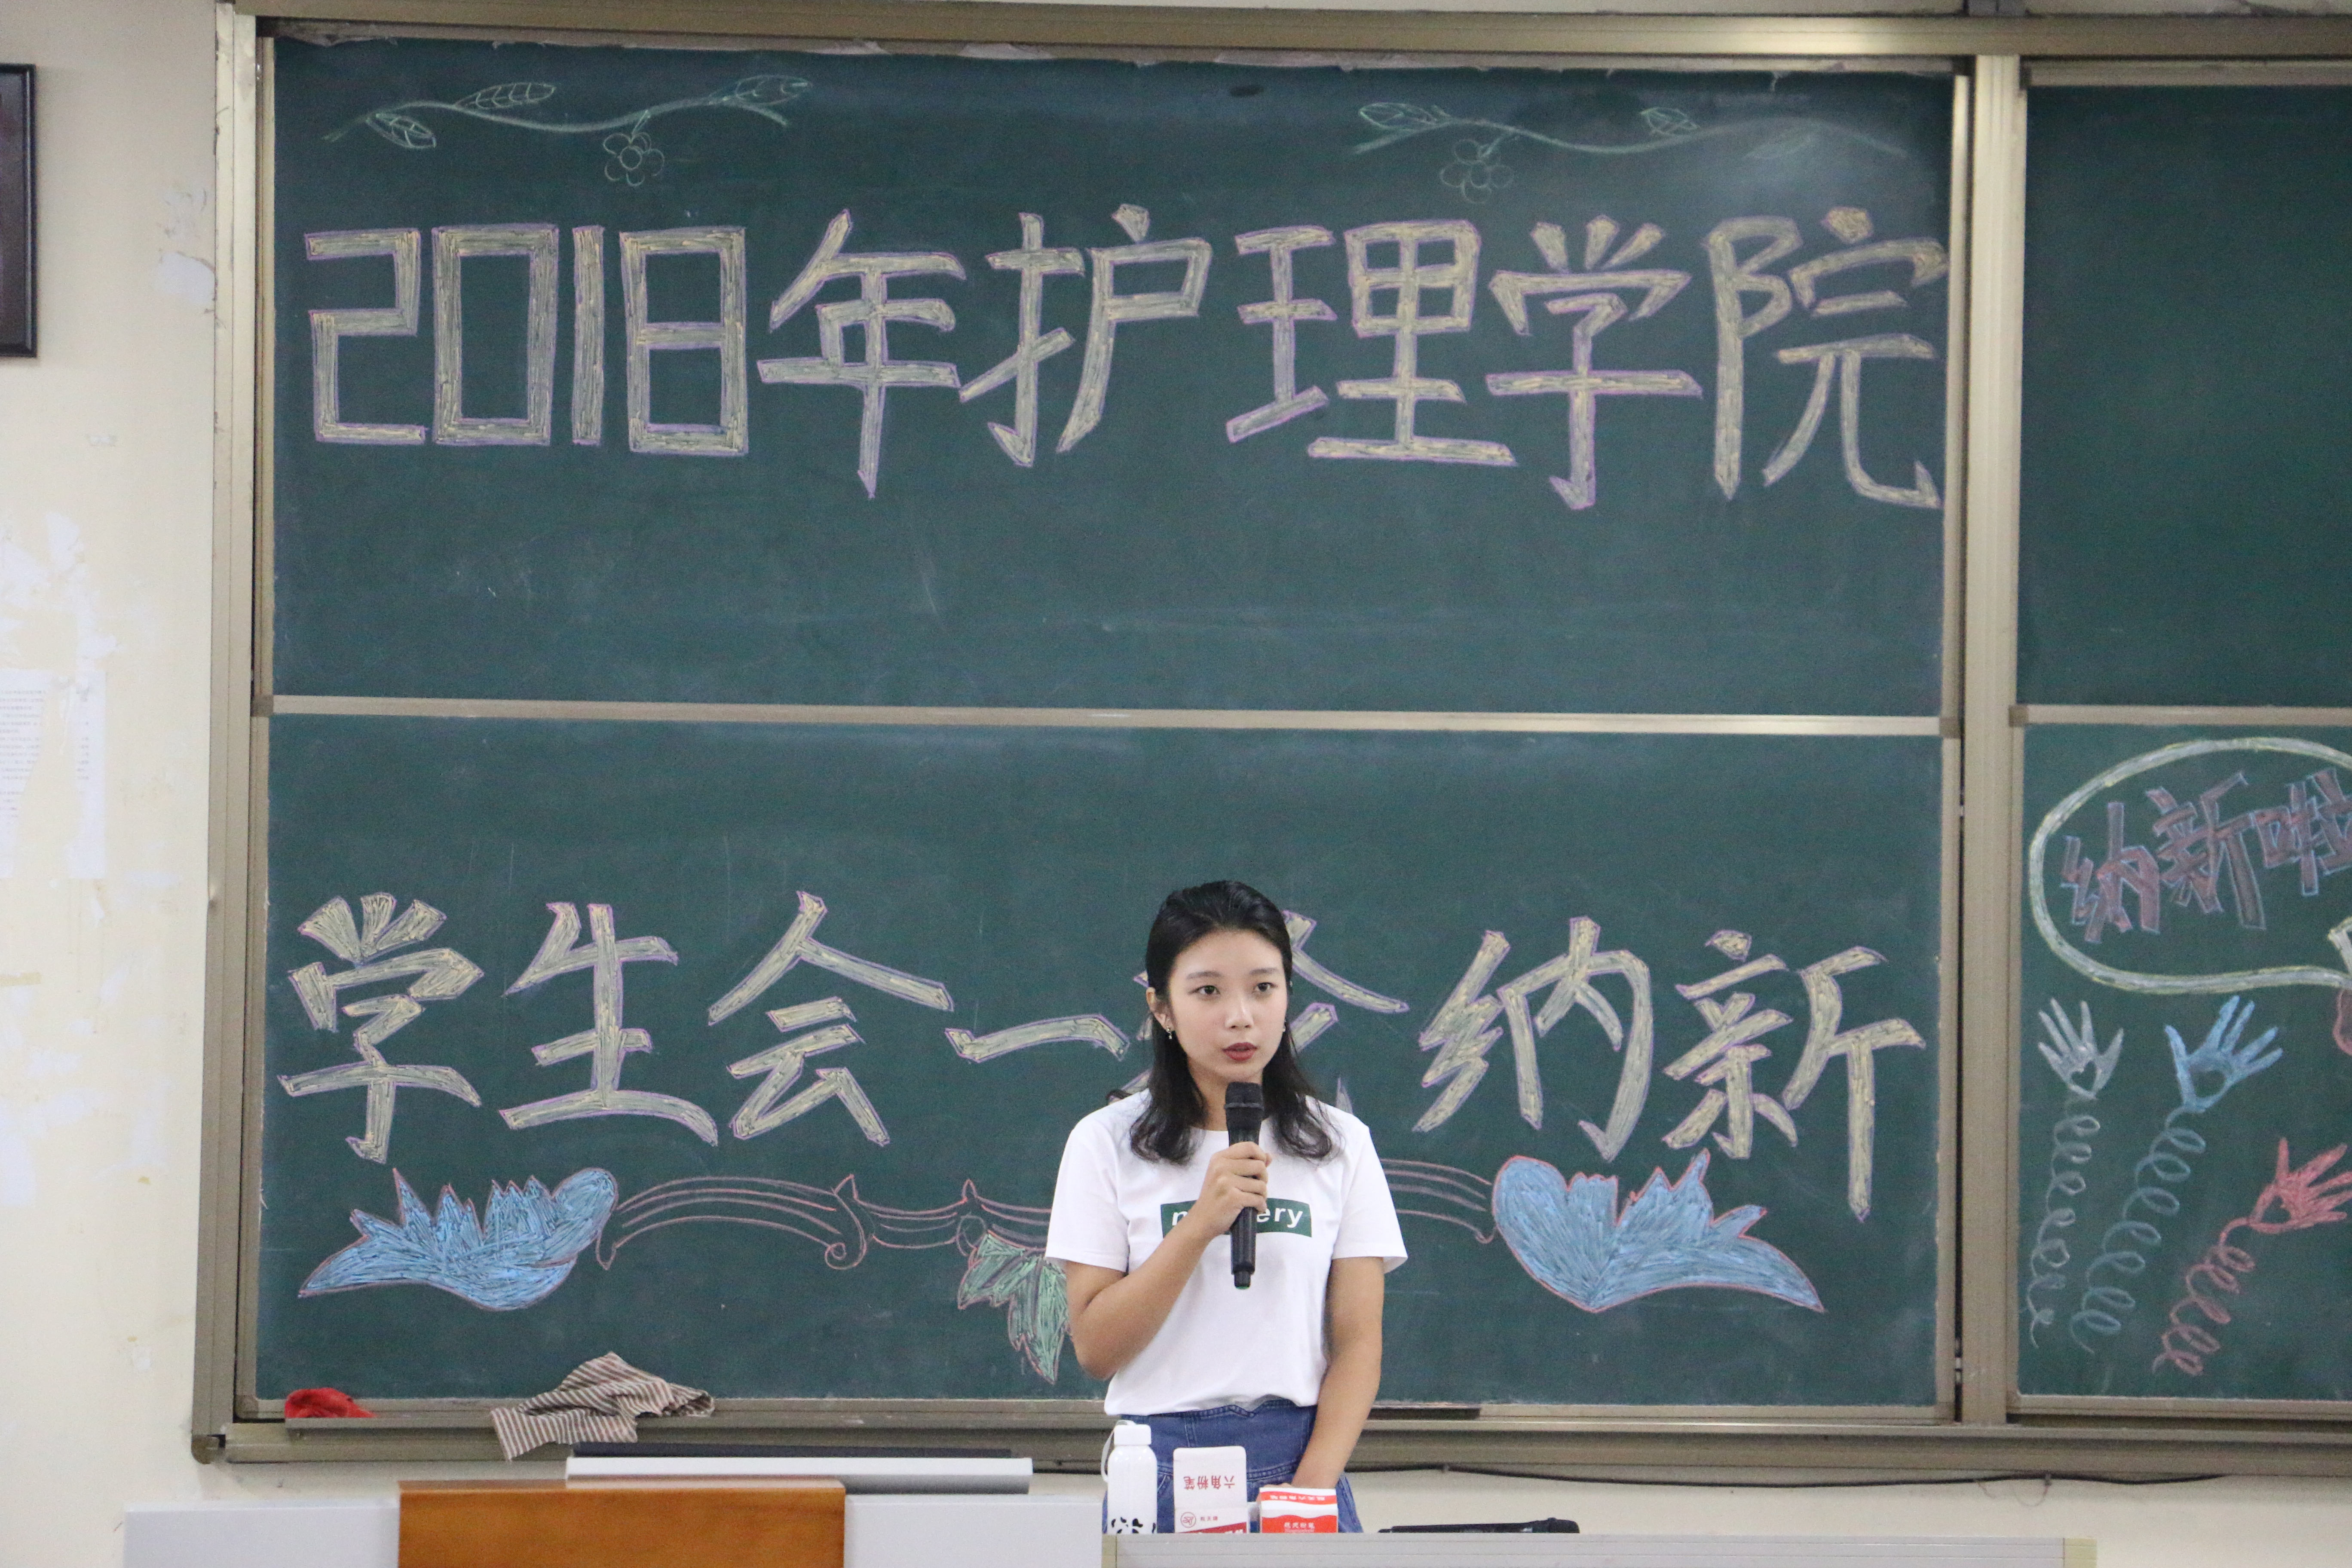 2018年护理学院
学生会一 纳新
纳新啦
ery
六角粉笔